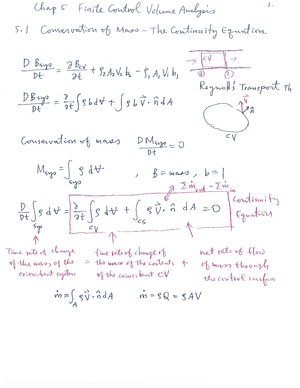 Chap 5 Finite Control Volume Analysis 1.
5.1 Conservation of Mass – The Continuity Equation
D Bsys/Dt = ∂Bcv/∂t + ρ₂A₂V₂b₂ − ρ₁A₁V₁b₁
CV
① ②
Reynold's Transport Th
D Bsys/Dt = ∂/∂t ∫ρb dV + ∫ρb V⃗·n̂ dA
V⃗ n̂
CV
Conservation of mass D Msys/Dt = 0
Msys = ∫sys ρ dV , B = mass, b = 1
Σṁout − Σṁin
D/Dt ∫sys ρ dV = ∂/∂t ∫cv ρ dV + ∫cs ρ V⃗·n̂ dA = 0 Continuity Equation
Time rate of change of the mass of the coincident system = time rate of change of the mass of the contents of the coincident CV + net rate of flow of mass through the control surface
ṁ = ∫A ρ V⃗·n̂ dA ṁ = ρQ = ρAV